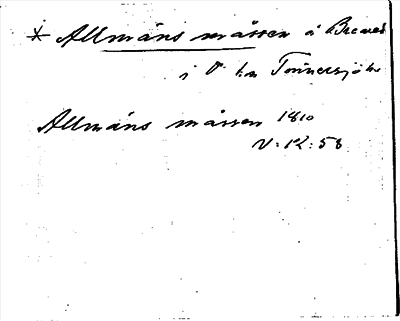 * Allmäns måssen å Bređared
i V. km Tönnersjö hd
Allmäns måssen 1810
V:12:58